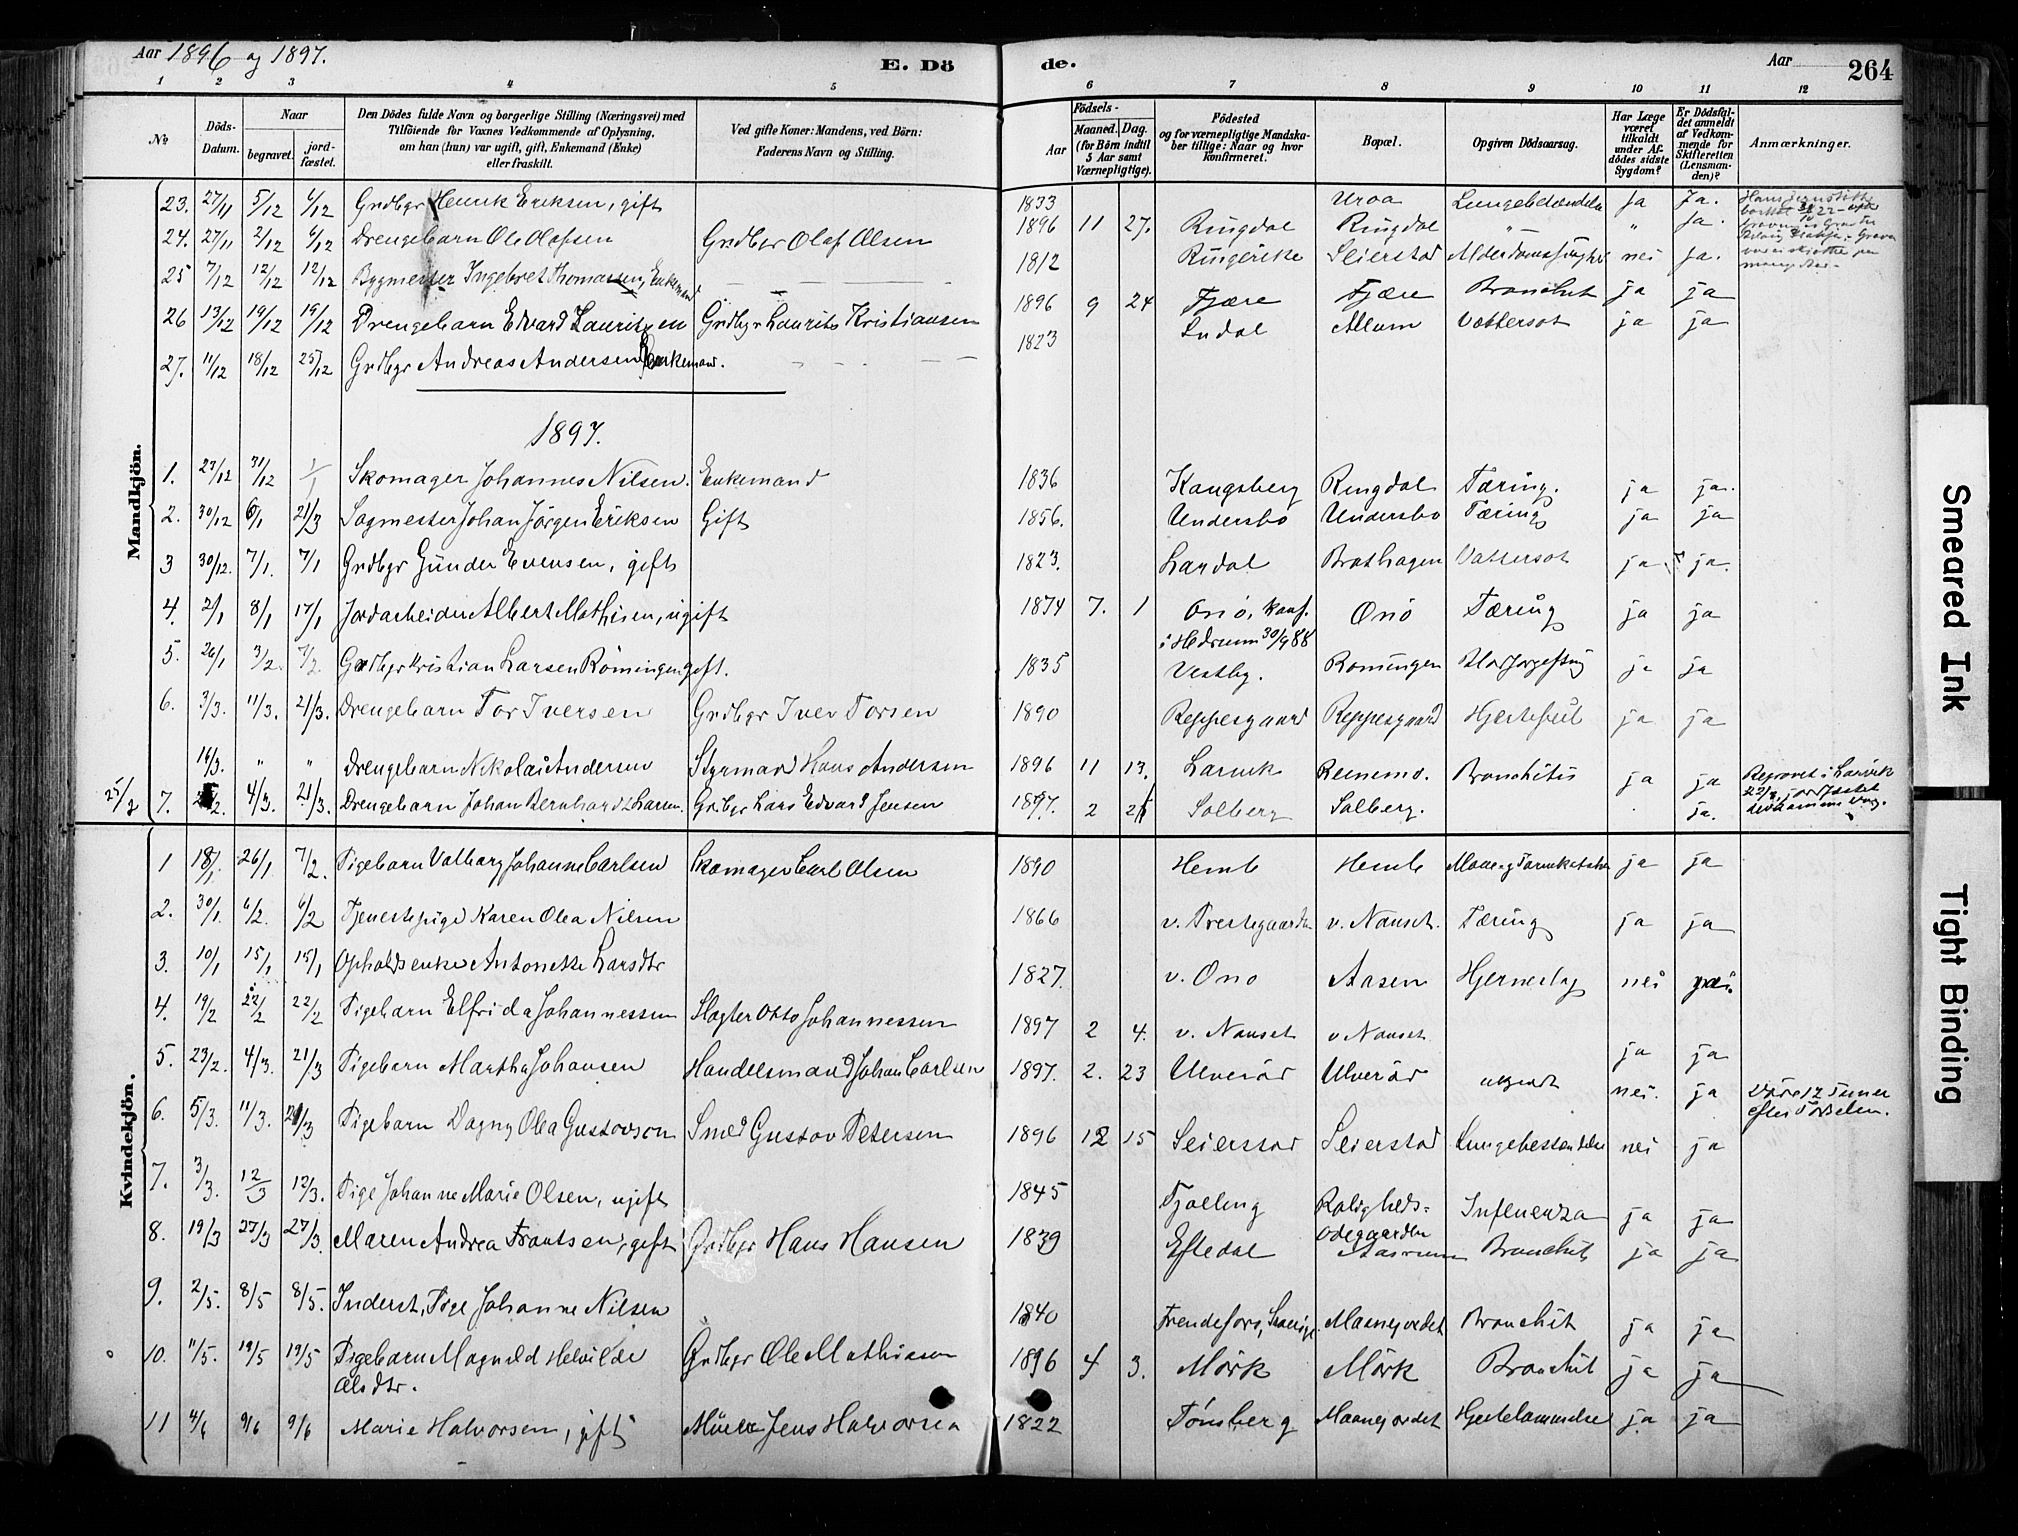 Aar 1896 og 1897.
E. Dö
de.
Aar
264
1 2 3 4 5 6 7 8 9 10 11 12
No
Döds-Datum.
Naar
begravet.
jord-fæstet.
Den Dödes fulde Navn og borgerlige Stilling (Næringsvei) med
Tilföiende for Voxnes Vedkommende af Oplysning,
om han (hun) var ugift, gift, Enkemand (Enke)
eller fraskilt.
Ved gifte Koner: Mandens, ved Börn:
Faderens Navn og Stilling.
Födsels-
Aar
Maaned. Dag.
(for Börn indtil
5 Aar samt
Værnepligtige).
Födested
og for værnepligtige Mandska-
ber tillige: Naar og hvor
konfirmeret.
Bopæl.
Opgiven Dödsaarsag.
Har Læge
været
tilkaldt
under Af-
dödes sidste
Sygdom?
Er Dödsfal-
det anmeldt
af Vedkom-
mende for
Skifteretten
(Lensman-
den)?
Anmærkninger.
Mandkjön.
23. 27/11 5/12 6/12 Grdbgr Henrik Eriksen, gift 1833 Uroa Lungebetændelse ja Ja.
24. 27/11 2/12 6/12 Drengebarn Ole Olafsen Grdbgr Olaf Olsen 1896 11 27. Ringdal Ringdal " " Ja.
25 7/12 12/12 12/12 Bygmester Ingebret Thomassen, Enkemand 1812 Ringerike Seierstad nei Ja.
26 13/12 19/12 19/12 Drengebarn Edvard Lauritzen Grdbgr Laurits Kristiansen 1896 9 24 Fjære Fjære Bronchit ja ja
27. 11/12 18/12 25/12 Grdbgr Andreas Andersen Enkemand. 1823 Allum Vattersot ja ja
1897.
1. 27/12 31/12 Skomager Johannes Nilsen. Enkemand 1836 Kongsberg Ringdal Tæring. ja ja.
2. 30/12 6/1 21/3 Sagmester Johan Jörgen Eriksen Gift 1856. Undersbo Undersbo Tæring ja ja
3 30/12. 7/1. 7/1 Grdbgr Gunder Evensen, gift 1823. Lardal Brathagen Vattersot ja ja.
4. 2/1 8/1 17/1 Jordarbeider Albert Mathisen, ugift 1874 7. 1 Onö, konf. Onö Tæring ja ja
i Hedrum 30/9 88
5. 26/1 3/2. 7/2. Grdbgr Kristian Larsen Römingen gift. 1835 Vestby. Romingen ja ja
6. 3/3. 11/3. 21/3. Drengebarn Tor Iversen Grdbgr Iver Torsen 1890 Reppesgaard Reppesgaard Hjertefeil ja ja
16/3. " " Drengebarn Nikolai Andersen Styrmand Hans Andersen 1896 11 13. Larvik Reinemo. Bronchitis ja ja Begravet i Larvik
25/2 7. 4/3. 21/3. Drengebarn Johan Bernhard Larsen. Grdbgr Lars Edvard Jensen 1897. 2 Solberg Solberg. ja.
Kvindekjön.
1 18/1. 26/1. 7/2. Pigebarn Valborg Johanne Carlsen Skomager Carl Olsen 1890 Hemb Hemb ja ja
2. 30/1. 6/2. 6/2 Tjenestepige Karen Olea Nilsen 1866 v. Prestegaarden v. Nanset. Tæring ja ja
3. 10/1 15/1 15/1 Opholdsenke Antonette Larsdtr 1827. v. Ono Aasen Hjerneslag nei
4. 19/2 22/2 22/2 Pigebarn Elfrida Johannessen Slagter Otto Johannessen 1897 2 4. v. Nanset v Nanset ja ja
5. 23/2. 4/3. 21/3 Pigebarn Martha Johansen Handelsmand Johan Carlsen 1897. 2. 23 Ulveröd Ulveröd nei. ja 12 Timer
efter Födselen.
6. 5/3. 11/3. 21/3 Pigebarn Dagny Olea Gustavson Smed Gustav Petersen 1896 12 15 Seierstad Seierstad Lungebetændelse nei ja
7. 3/3. 12/3 12/3. Pige Johanne Marie Olsen, ugift 1845 Tjølling Influenza ja ja
8. 19/3 27/3 27/3. Maren Andrea Frantsen, gift Grdbgr Hans Hansen 1839 Eftedal Aasrum Bronchit ja ja
9. 2/5. 8/5 8/5. Inderst, Pige Johanne Nilsen 1840 Maanejordet Bronchit ja ja
10. 11/5. 19/5 19/5 Pigebarn Magnild Helvilde Grdbgr Ole Mathisen 1896 4 3. Mörk Mörk Bronchit ja ja
Olsdtr.
11 4/6 9/6 9/6 Marie Halvorsen, gift Jens Halvorsen 1822 Tönsberg Maanejordet Hjertelammelse ja ja
Smeared Ink
Tight Binding